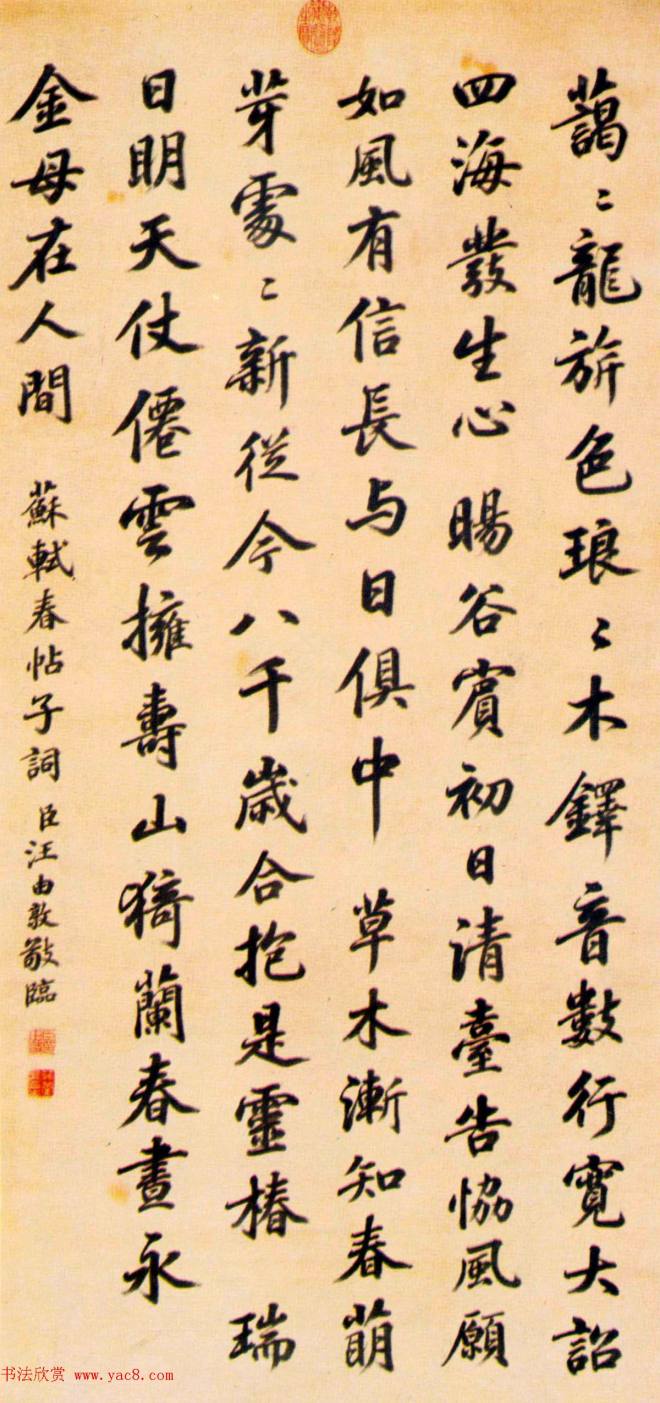 藹〻龍旂色琅〻木鐸音數行寬大詔
四海發生心 暘谷賓初日清臺告協風願
如風有信長与日俱中 草木漸知春萌
芽處〻新從今八千歲合抱是靈椿 瑞
日明天仗僊雲擁壽山猗蘭春晝永
金母在人間
蘇軾春帖子詞 臣汪由敦敬臨
书法欣赏 www.yac8.com